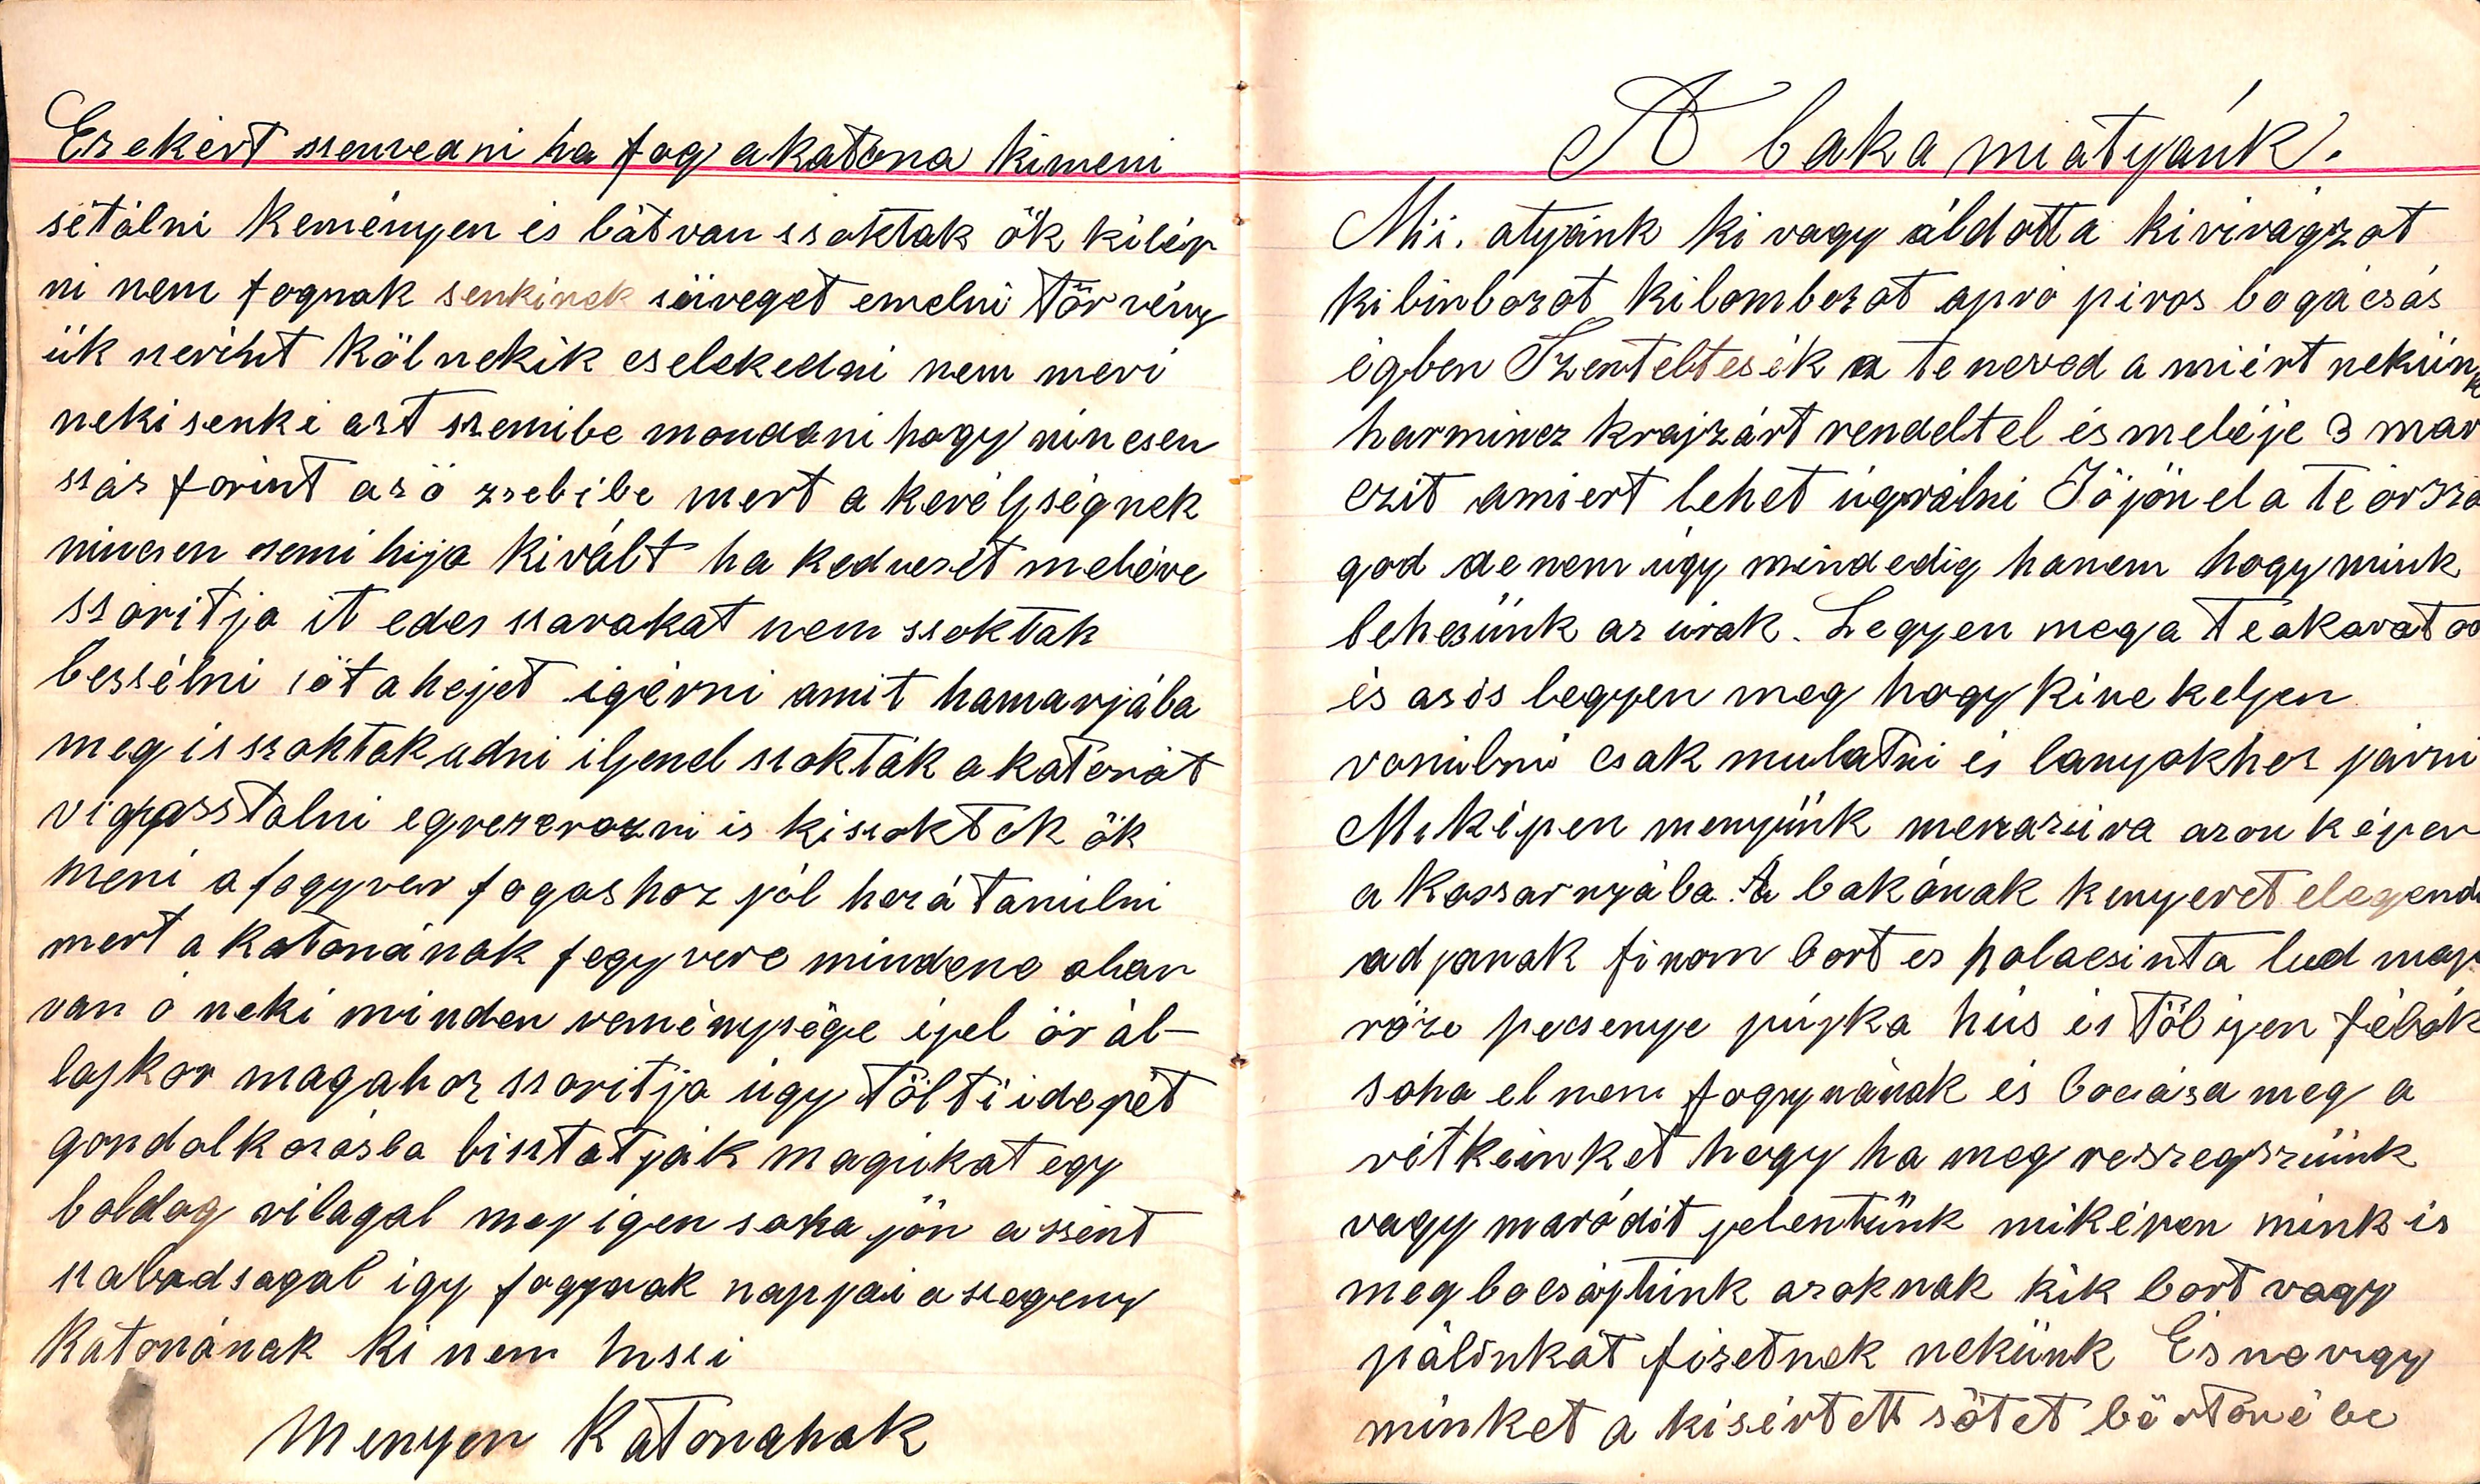 Ezekért szenvedni ha fog a katona kimeni
sétálni keményen és bátvan szoktak ők kilép
ni nem fognak senkinek süveget emelni törvény
ük szerint köl nekik cselekedni nem meri
neki senki azt szemibe mondani hogy nincsen
száz forint az ő zsebibe mert a kevéljségnek
nincsen semi hija kivált ha kedvesét meléve
szoritja it édes szavakat nem szoktak
beszélni sőt a hejet igérni amit hamarjába
meg is szoktak adni iljenel szokták a katonát
vigasztalni egzecerozni is ki szoktak ők
meni a fegyver fogashoz jól hozá tanúlni
mert a katonának fegyvere mindene aban
van ő neki minden reménysége éjel őr ál-
láskor magahoz szoritja úgy tölti idejét
gondolkozásba bisztatják magúkat egy
boldog vilagal mej igen soka jön a szent
szabadsagal igy fogynak nappai a szegeny
katonának ki nem hiszi
Menyen Katonának
A baka miatyánk.
Mii. atyánk ki vagy áldotta kivirágzot
kibinbozot kilombozot apró piros bogácsás
égben Szenteltesék a te neved a miért nekünk
harmincz krajzárt rendeltel és meléje 3 mar
czit amiert lehet úgrálni Jöjön el a te orszá
god de nem úgy mind edig hanem hogy mink
lehesünk az urak. Legyen meg a te akarat od
és az is legyen meg hogy kine keljen
vonúlni csak mulatni és lanyokhoz járni
Miképen menyünk menázsira azon képen
a kaszarnyába. A bakának kenyeret elegend
adjanak finom bort es palacsinta lud máj
róze pecsenye pújka hús és töb ijen félék
soha el nem fogynának és bocsása meg a
vétkeinket hogy ha meg reszegszünk
vagy maródit jelentünk miképen mink is
meg bocsájtunk azoknak kik bort vagy
pálinkát fizetnek nekünk És ne vigy
minket a kisértett sötet börtönébe